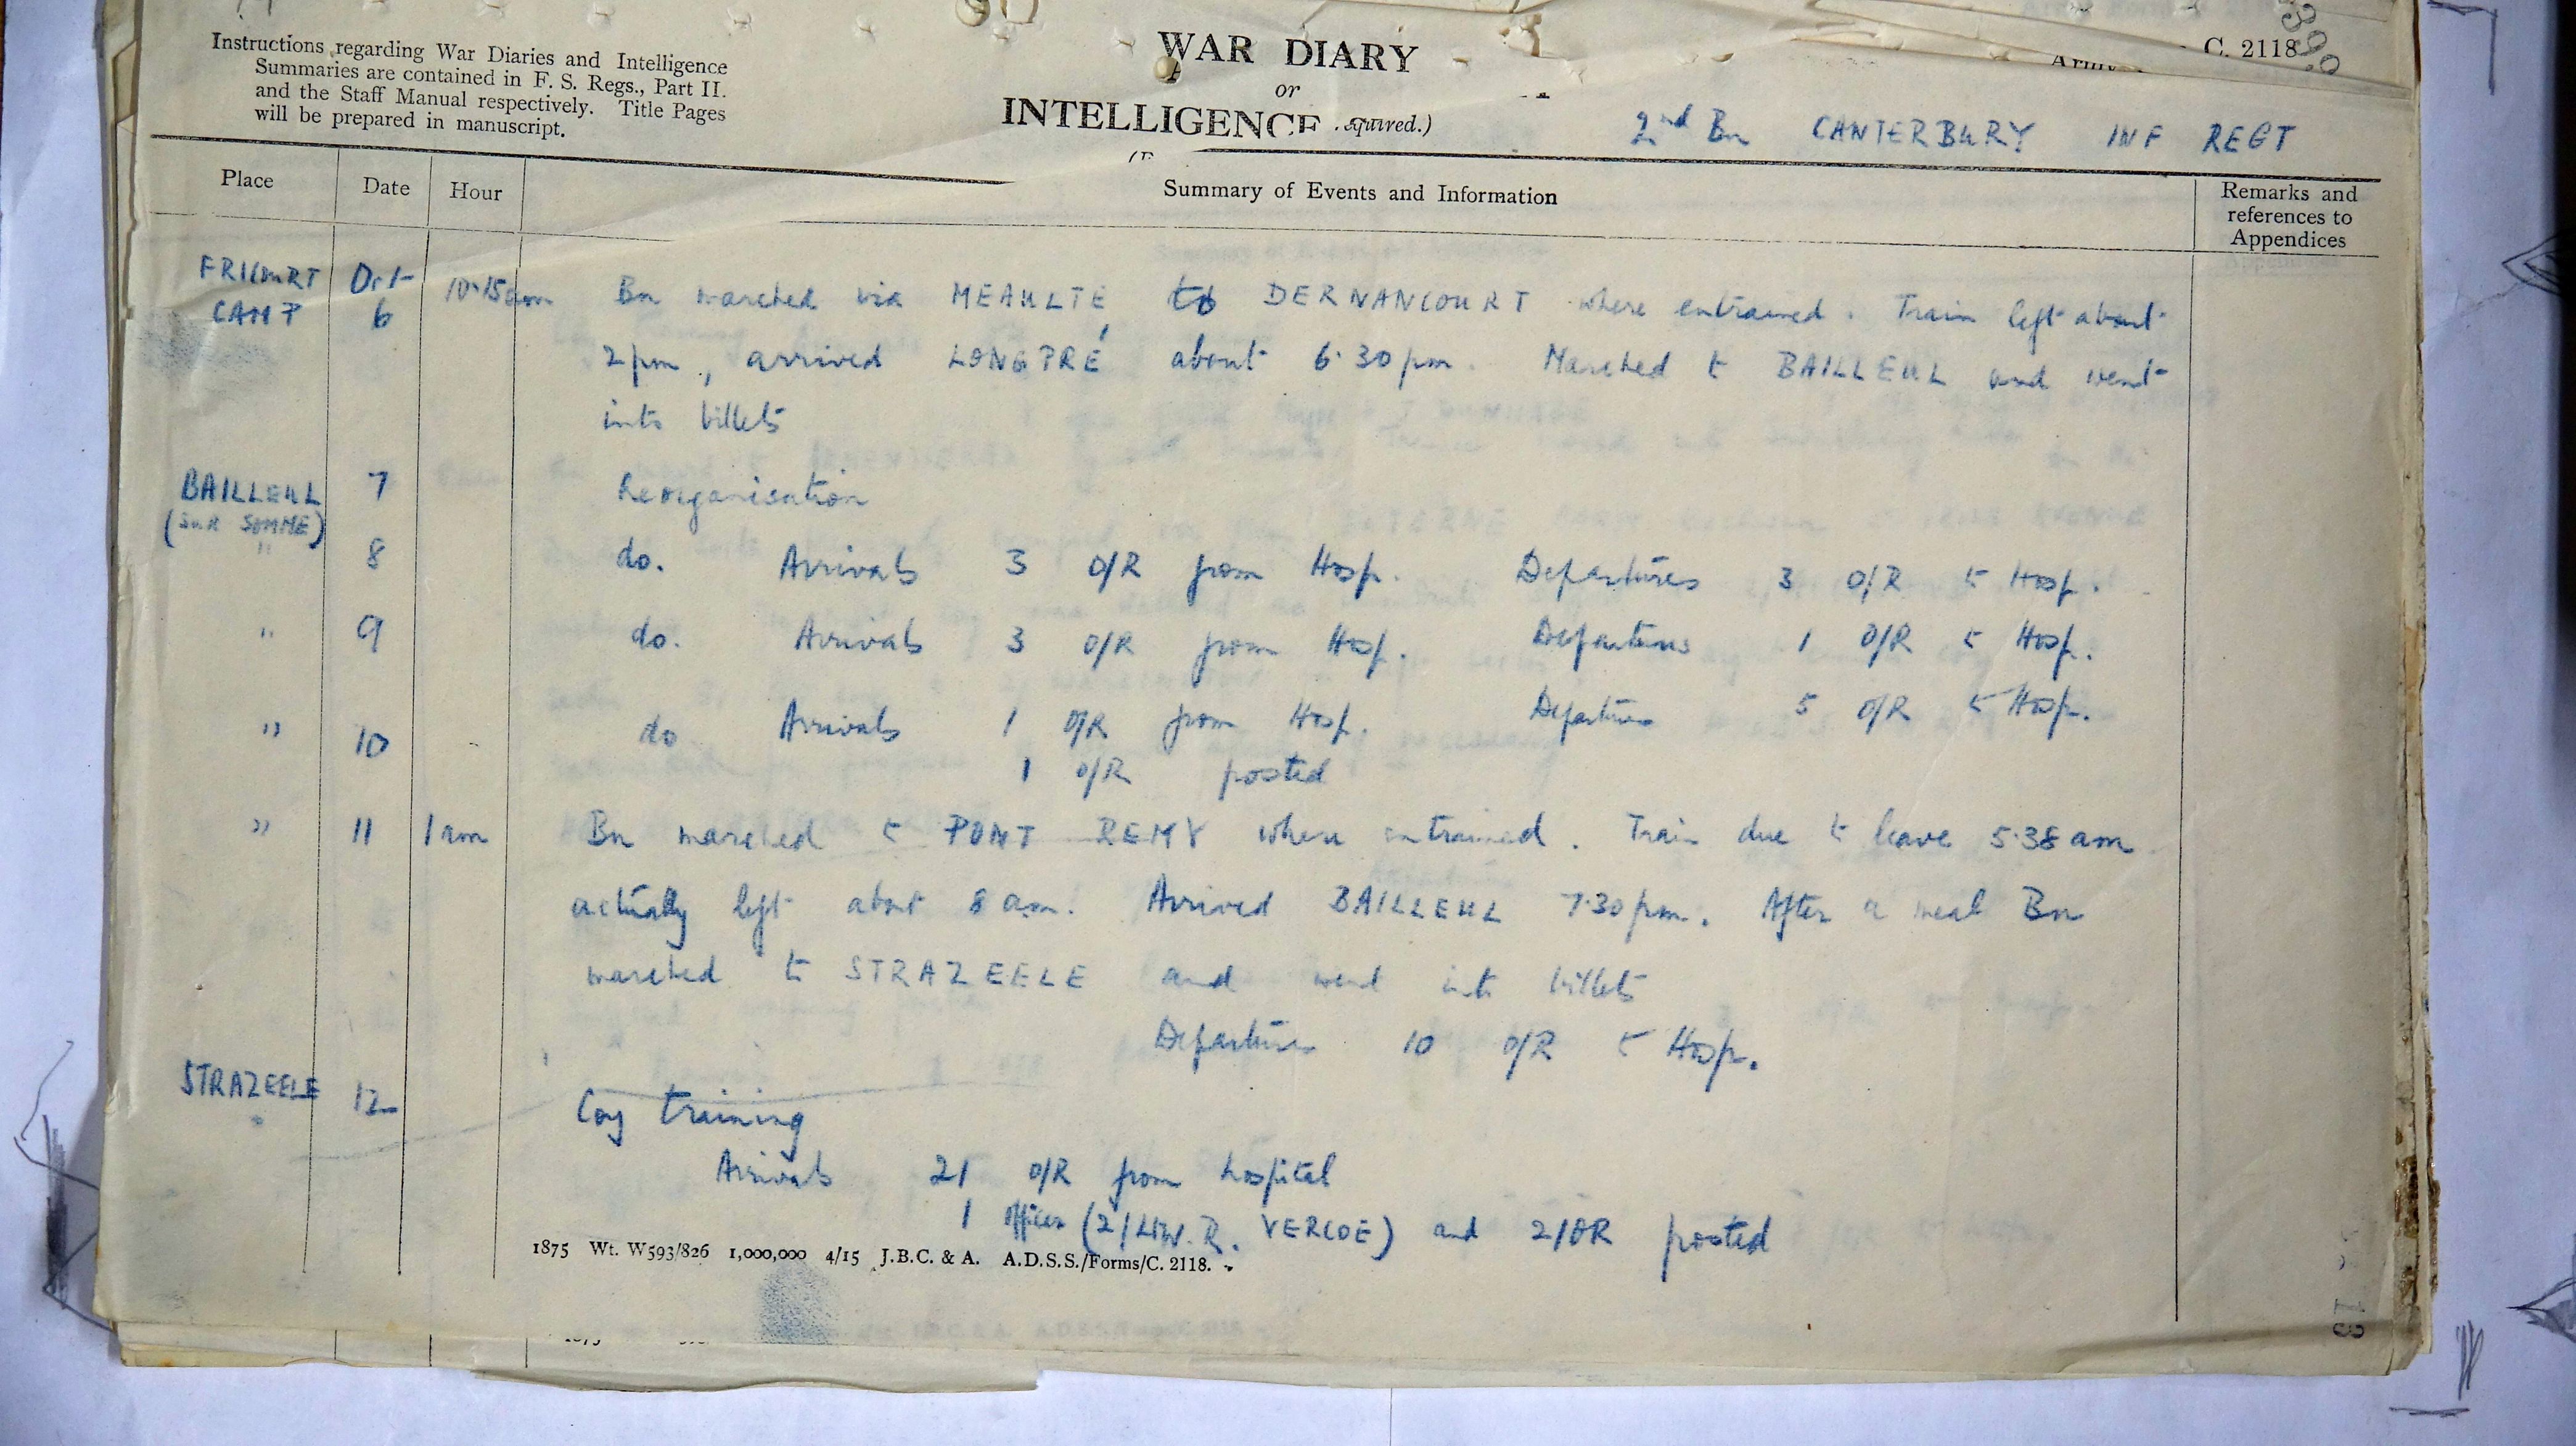 Instructions regarding War Diaries and Intelligence
Summaries are contained in F. S. Regs., Part II.
and the Staff Manual respectively. Title Pages
will be prepared in manuscript.
WAR DIARY
or
INTELLIGENCE
quired.)
Army
C. 2118
2nd Bn CANTERBURY INF REGT
Place Date Hour Summary of Events and Information Remarks and references to Appendices
FRICOURT CAMP Oct 6 10.15am Bn marched via MEAULTE to DERNANCOURT where entrained. Train left about
2pm, arrived LONGPRÉ about 6.30pm. Marched to BAILLEUL and went
into billets
BAILLEUL (SUR SOMME) 7 Reorganisation
" 8 do. Arrivals 3 O/R from Hosp. Departures 3 O/R to Hosp.
" 9 do. Arrivals 3 O/R from Hosp. Departures 1 O/R to Hosp.
" 10 do Arrivals 1 O/R from Hosp. Departures 5 O/R to Hosp.
1 O/R posted
" 11 1am Bn marched to PONT REMY where entrained. Train due to leave 5.38am
actually left about 8am. Arrived BAILLEUL 7.30pm. After a meal Bn
marched to STRAZEELE and went into billets
Departures 10 O/R to Hosp.
STRAZEELE 12 Coy training
Arrivals 21 O/R from hospital
1 Officer (2/Lt W. R. VERCOE) and 2/OR posted
1875 Wt. W593/826 1,000,000 4/15 J.B.C. & A. A.D.S.S./Forms/C. 2118.